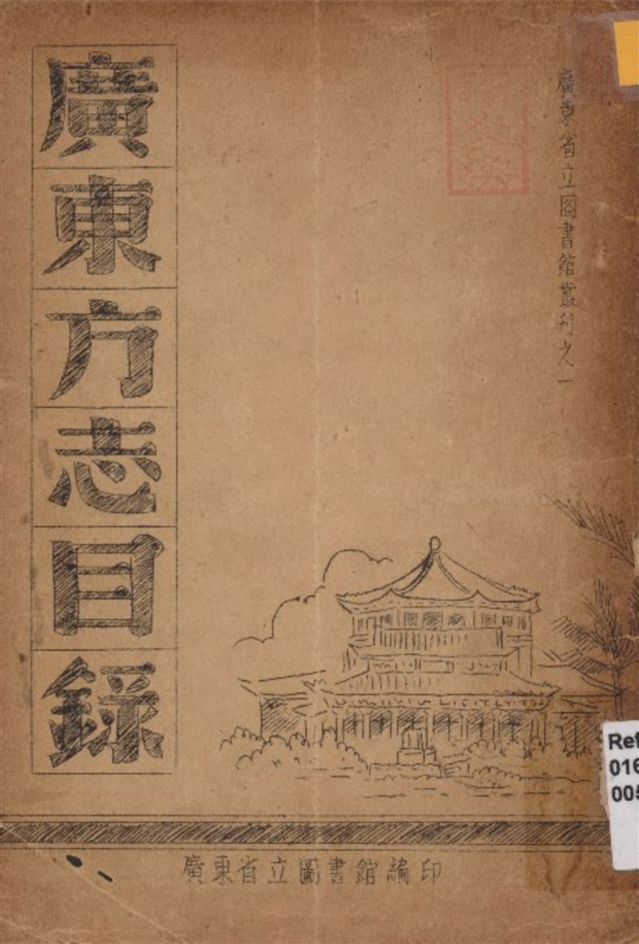 廣東省立圖書館叢刊之一
廣東方志目錄
廣東省立圖書館編印
Ref
016
005